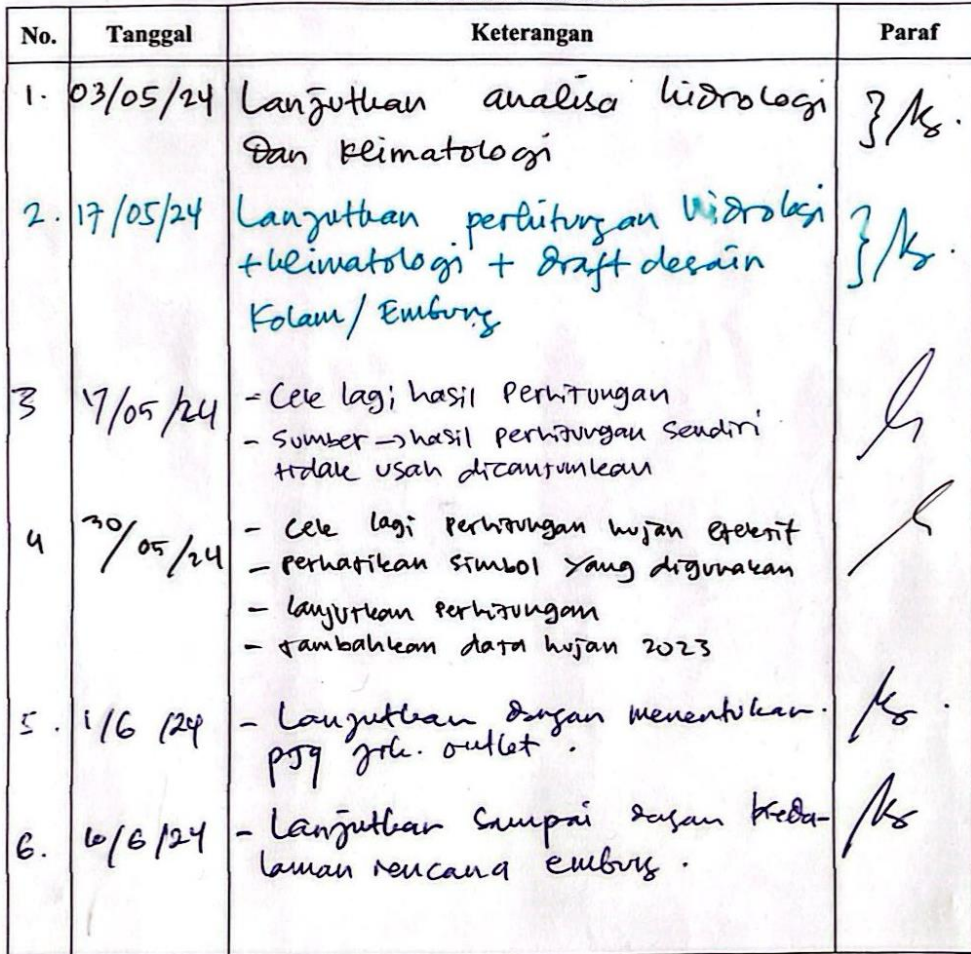 No. Tanggal Keterangan Paraf
1. 03/05/24 Lanjutkan analisa hidrologi
dan klimatologi
2. 17/05/24 Lanjutkan perhitungan hidrologi
+ klimatologi + draft desain
Kolam / Embung
3 17/05/24 - Cek lagi hasil Perhitungan
- Sumber → hasil perhitungan sendiri
tidak usah dicantumkan
4 30/05/24 - Cek lagi perhitungan hujan efektif
- perhatikan simbol yang digunakan
- lanjutkan perhitungan
- tambahkan data hujan 2023
5. 1/6/24 - Lanjutkan dengan menentukan
pjg outlet.
6. 10/6/24 - Lanjutkan sampai dengan keda-
laman rencana embung.